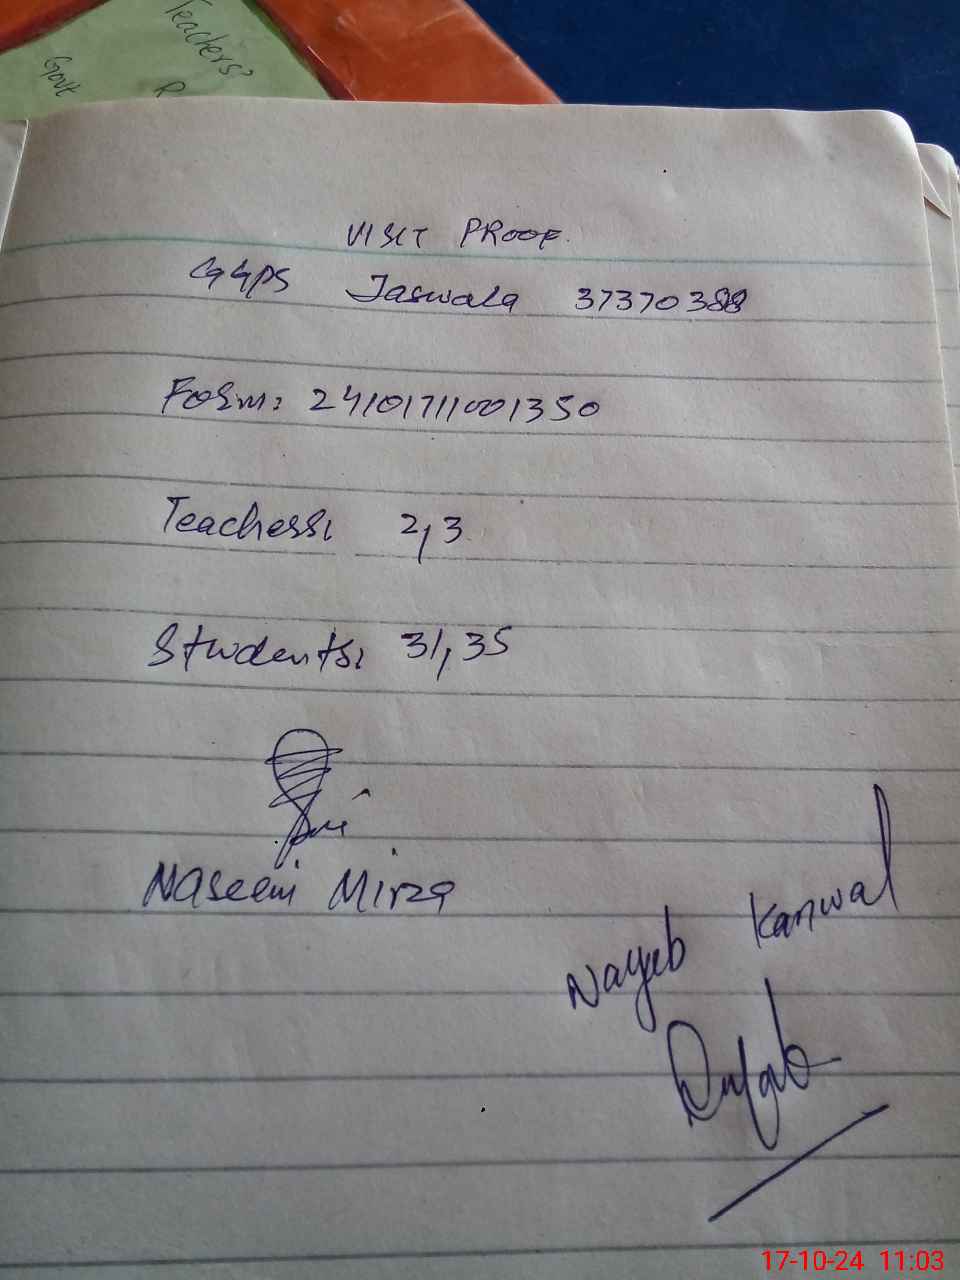 Teachers'
Govt R
VISIT PROOF.
GGPS Jaswala 37370388
Form: 24101711001350
Teachers: 2,3
Students: 31,35
Naseem Mirza
Nayab Kanwal
17-10-24 11:03